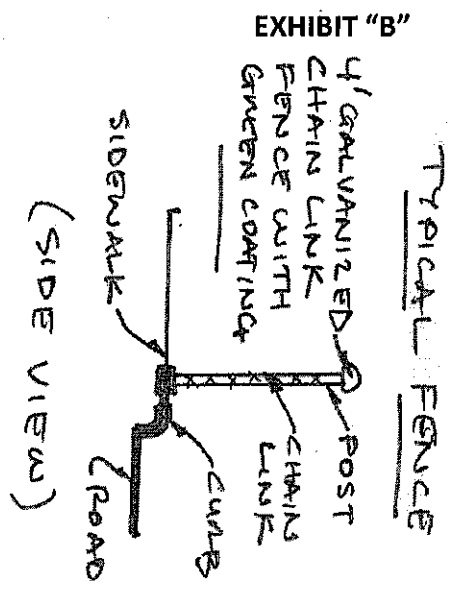 EXHIBIT "B"
TYPICAL FENCE
4' GALVANIZED
CHAIN LINK
FENCE WITH
GREEN COATING
POST
CHAIN
LINK
SIDEWALK
CURB
ROAD
(SIDE VIEW)